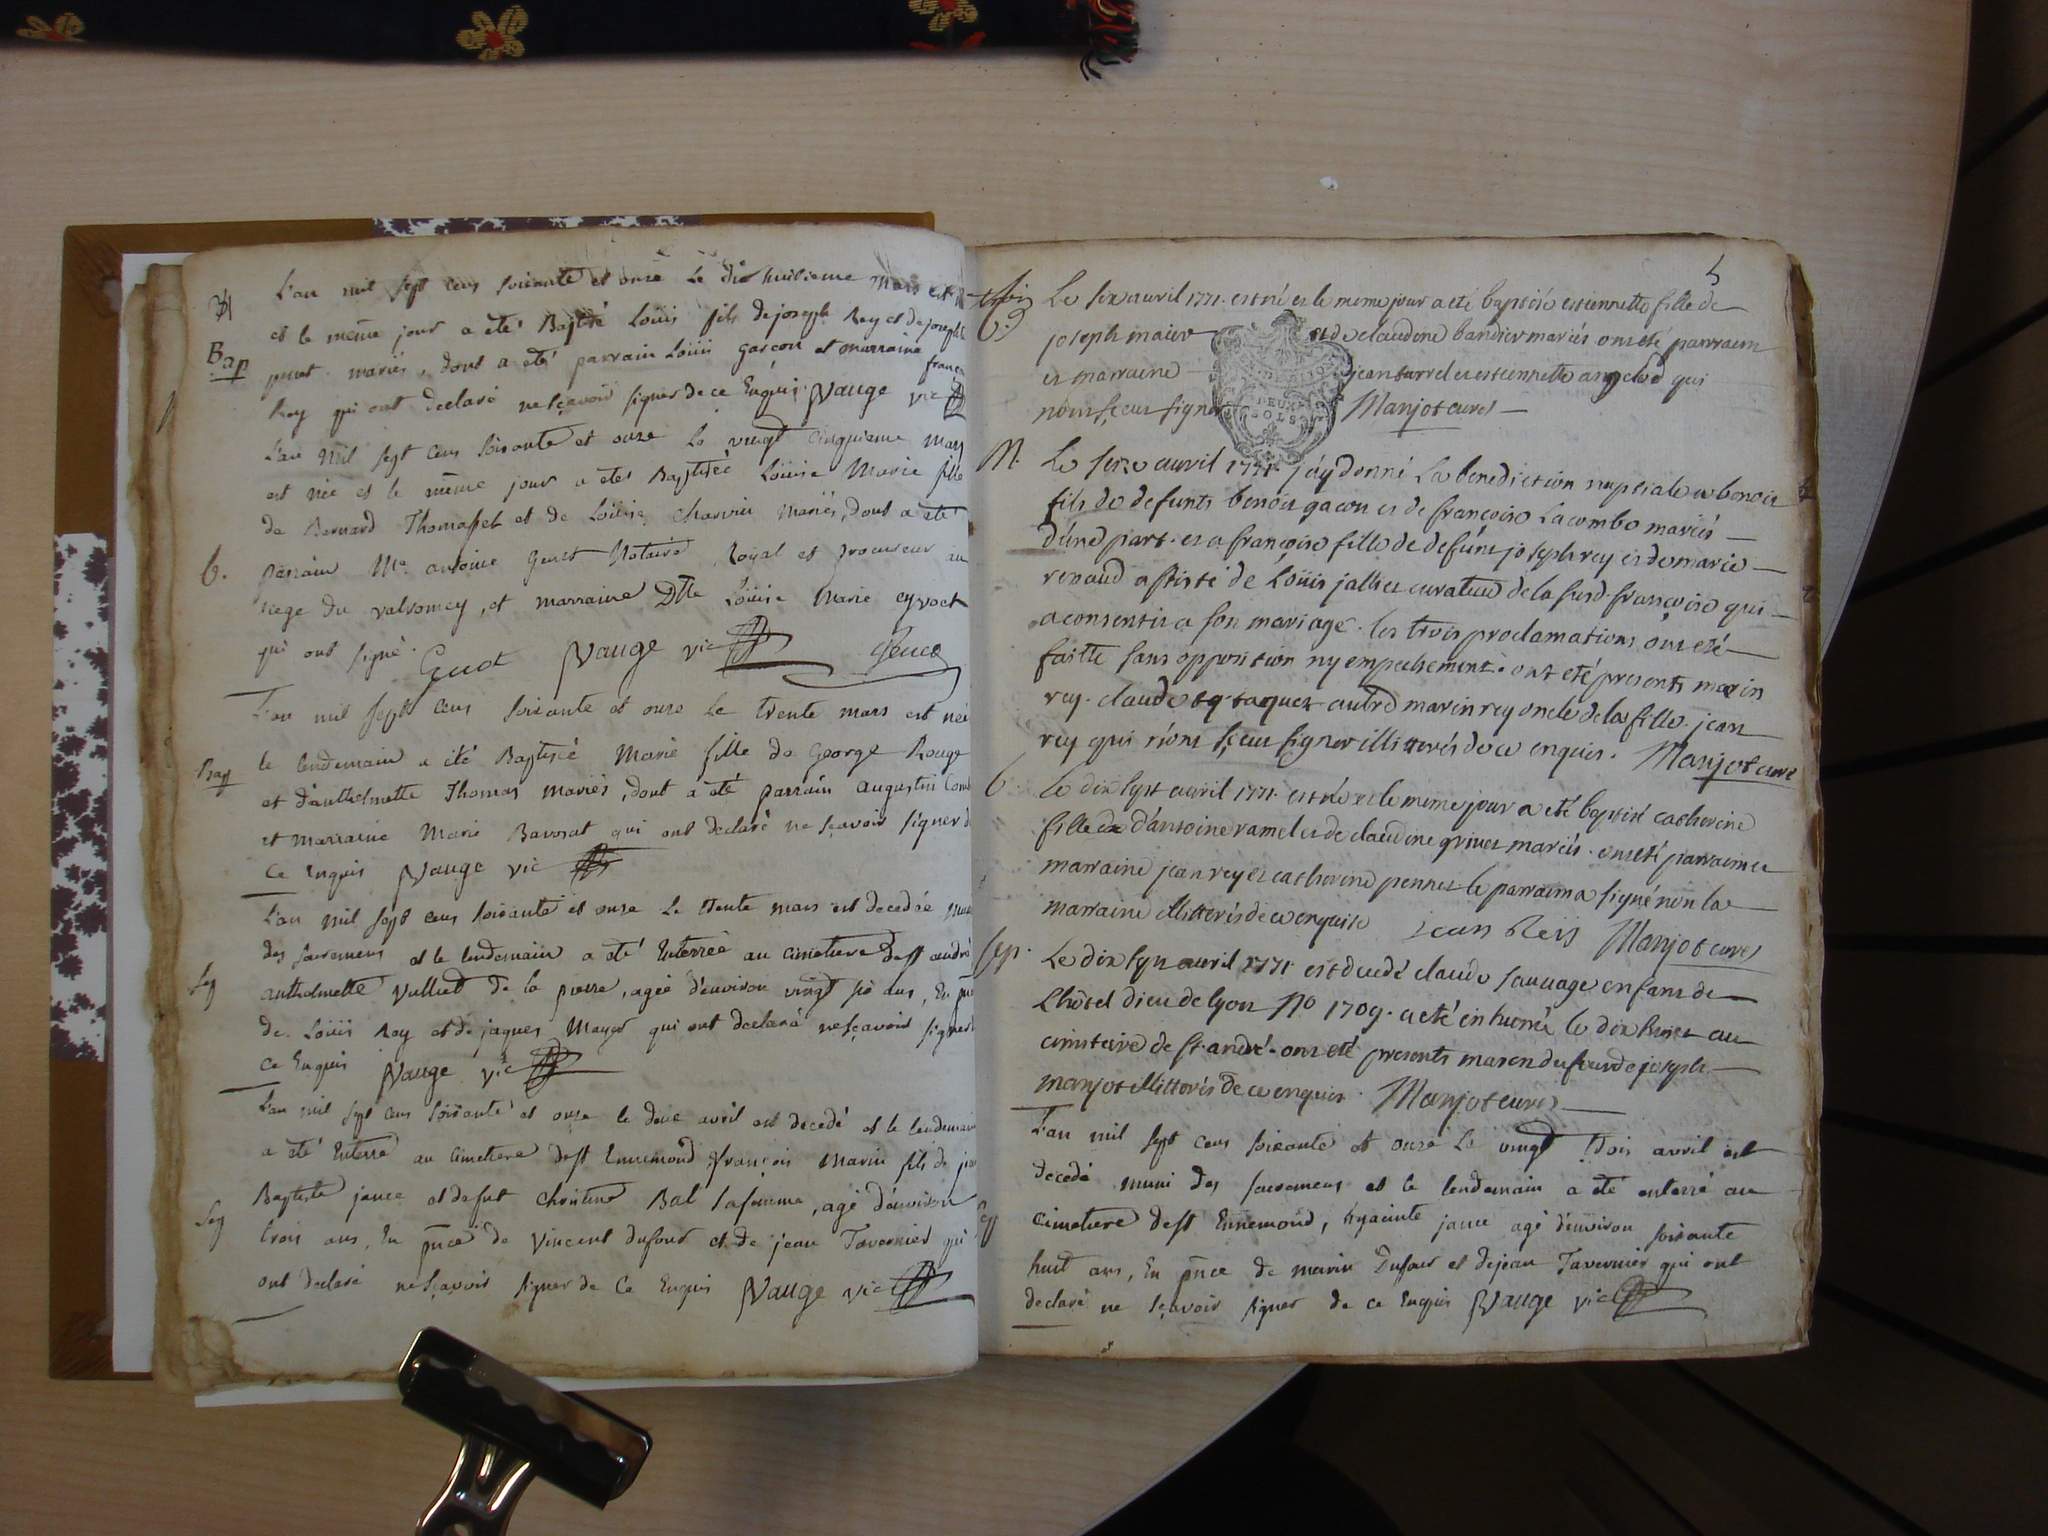 L'an mil sept cens soixante et onze le dix huitieme mars est né
Bap
et le même jour a eté Baptisé Loüis fils de joseph Rey et de josephte
mariés, dont a eté parrain Loüis garçon et marraine
Rey qui ont declaré ne sçavoir signer de ce Enquis Vauge vic
L'an mil sept cens soixante et onze le vingt cinquieme mars
est née et le même jour a eté Baptisée Loüise Marie fille
de Bernard Thomasset et de Loüise Charvin mariés, dont a eté
b.
parrain Me antoine Notaire Royal et procureur au
siege du valromey, et marraine Dlle Loüise Marie eyvoct
qui ont signé. Vauge vic
L'an mil sept cens soixante et onze le trente mars est née
Bap
le lendemain a eté Baptisée Marie fille de George Rouge
et d'anthelmette Thomas mariés, dont a eté parrain augustin
et marraine Marie Bavosat qui ont declaré ne sçavoir signer de
Ce Enquis Vauge vic
L'an mil sept cens soixante et onze le trente mars est decedée
des sacremens et le lendemain a eté Enterrée au cimetiere de st andré
Sep
anthelmette Vulliet de la pierre, agée d'environ vingt six ans, En
de Loüis Rey et de jaques qui ont declaré ne sçavoir signer
Ce Enquis Vauge vic
L'an mil sept cens soixante et onze le deux avril est decedé et le lendemain
a eté Enterré au Cimetiere de st Ennemond françois Marin fils de jean
Baptiste jance et de fut Christine Bal sa femme, agé d'environ
Sep
trois ans, En pnce de Vincent dufour et de jean Tavernier qui
ont declaré ne sçavoir signer de Ce Enquis Vauge vic
5
Le six avril 1771. est né et le meme jour a eté baptisée estiennette fille de
b.
joseph maire et de claudine bandier mariés ont eté parrain
et marraine jean et estiennette qui
n'ont sçeu signer Manjot curé
DEUX SOLS
M.
Le seize avril 1771. j'ay donné la benediction nuptiale a benoit
fils de defunts benoit gacon et de françoise Lacombe mariés
d'une part. et a françoise fille de defunt joseph rey et de marie
renaud assisté de Loüis jallier curateur de la susd. françoise qui
a consentis a son mariage. les trois proclamations ont eté
faitte sans opposition ny empechement. ont eté presents marin
rey. claude autre marin rey oncle de la fille. jean
rey qui n'ont sçeu signer illitterés de ce enquis. Manjot curé
b.
Le dix sept avril 1771. est né et le meme jour a eté baptisé catherine
fille d'antoine ramel et de claudine grinet mariés. ont eté parrain et
marraine jean rey et catherine pernet le parrain a signé non la
marraine illitterés de ce enquise jean Reÿ Manjot curé
sep.
Le dix sept avril 1771 est decedé claude sauvage enfant de
L'hôtel dieu de lyon No 1709. a eté inhumé le dix huict au
cimetiere de st. andré. ont eté presents marin dufour de joseph
manjot illitterés de ce enquis. Manjot curé
L'an mil sept cens soixante et onze le vingt trois avril est
decedé muni des sacremens et le lendemain a eté enterré au
Sep
Cimetiere de st Ennemond, hyacinte jance agé d'environ soixante
huit ans, En pnce de marin Dufour et de jean Tavernier qui ont
declaré ne sçavoir signer de ce Enquis Vauge vic